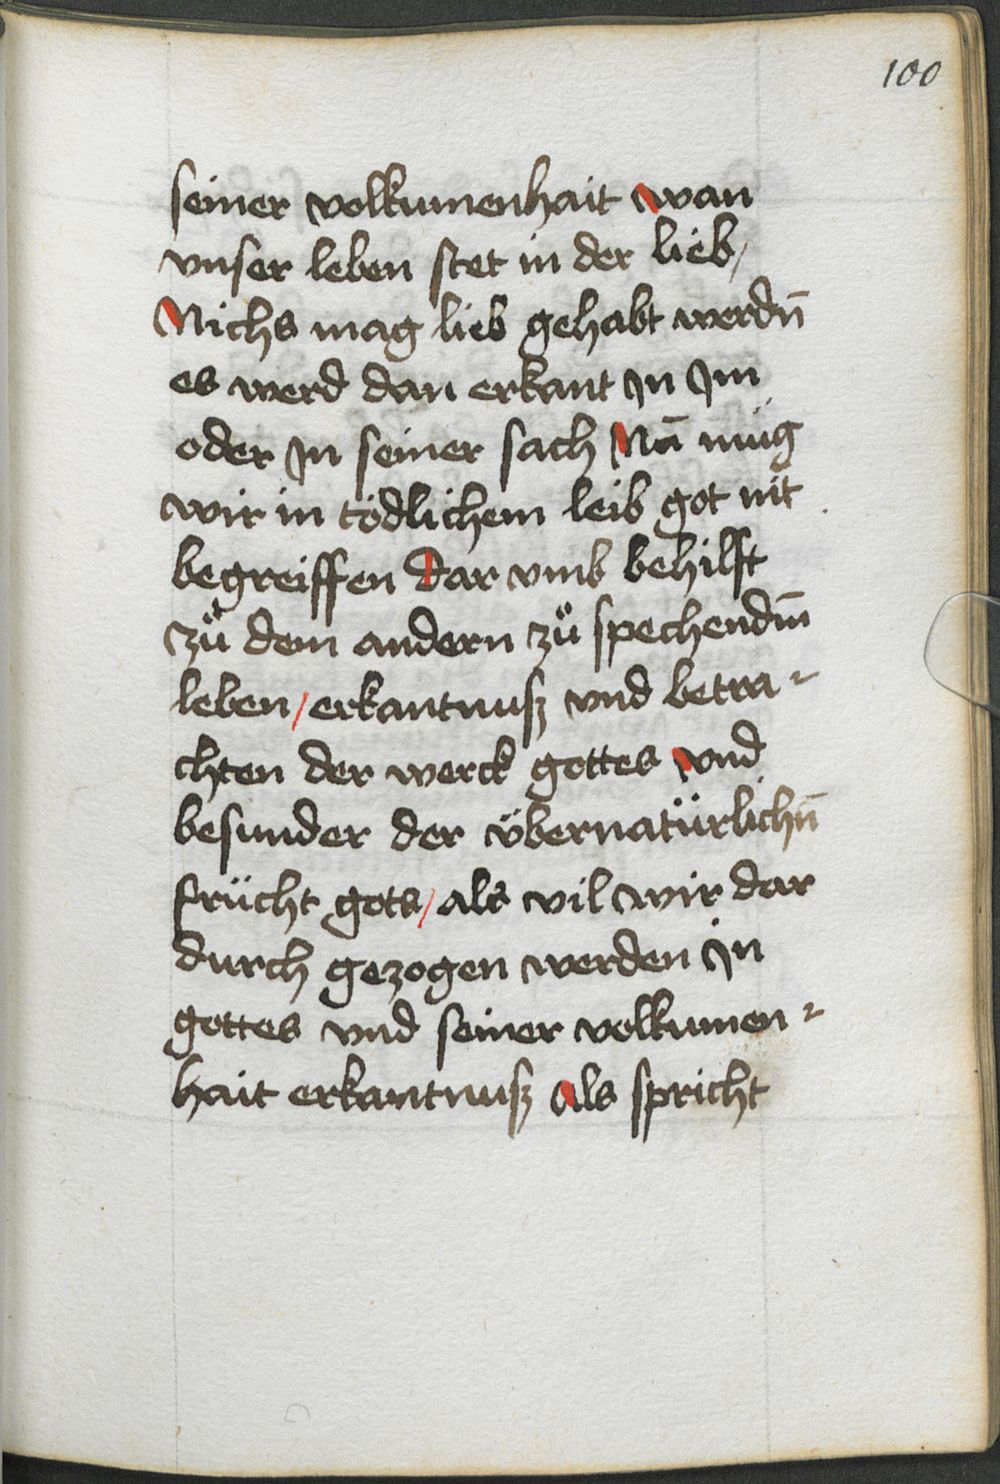 100
seiner volkumenhait wan
vnser leben stet in der lieb/
Nichs mag lieb gehabt werdn̄
es werd dan erkant Jn Jm
oder Jn seiner sach Nā müg
wir in tödlichem leib got nit
begreiffen dar vmb behilft
zů dem andern zů spechendm̄
leben/erkantnusz vnd betra-
chten der werck gottes vnd
besunder der v̈bernatürlichn̄
frücht gots/als vil wir dar
durch gezogen werden jn
gottes vnd seiner volkumen-
hait erkantnusz Als spricht